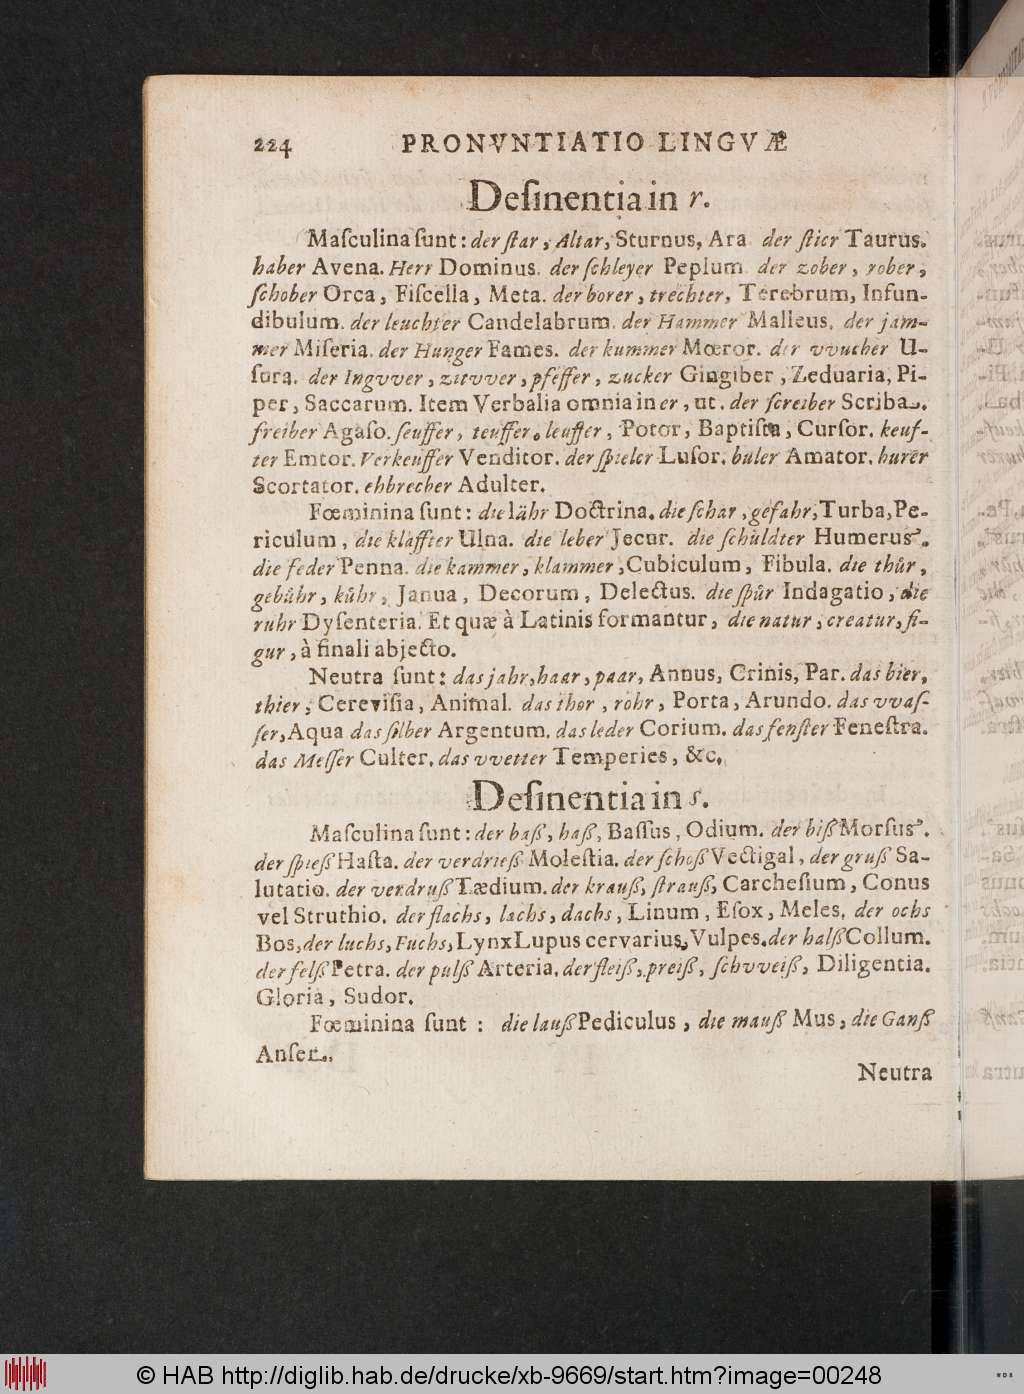 224 PRONVNTIATIO LINGVÆ
Deſinentia in r.
Maſculina ſunt: der ſtar, Altar, Sturnus, Ara der ſtier Taurus.
haber Avena. Herr Dominus. der ſchleyer Peplum der zober, rober,
ſchober Orca, Fiſcella, Meta. der borer, trechter, Terebrum, Infun-
dibulum. der leuchter Candelabrum. der Hammer Malleus. der jam-
mer Miſeria. der Hunger Fames. der kummer Mœror. der vvucher U-
ſura. der Ingvver, zitvver, pfeffer, zucker Gingiber, Zeduaria, Pi-
per, Saccarum. Item Verbalia omnia in er, ut. der ſcreiber Scriba.
freiber Agaſo. ſeuffer, teuffer. leuffer, Potor, Baptiſta, Curſor. keuf-
ter Emtor. Verkeuffer Venditor. der ſpieler Luſor. buler Amator. hurer
Scortator. ehbrecher Adulter.
Fœminina ſunt: die lähr Doctrina. die ſchar, gefahr, Turba, Pe-
riculum, die klaffter Ulna. die leber Jecur. die ſchuldter Humerus.
die feder Penna. die kammer, klammer, Cubiculum, Fibula. die thuͤr,
gebuͤhr, kuͤhr, Janua, Decorum, Delectus. die ſpuͤr Indagatio, die
ruhr Dyſenteria. Et quæ à Latinis formantur, die natur, creatur, fi-
gur, à finali abjecto.
Neutra ſunt: das jahr, haar, paar, Annus, Crinis, Par. das bier,
thier, Cereviſia, Animal. das thor, rohr, Porta, Arundo. das vvaſ-
ſer, Aqua das ſilber Argentum. das leder Corium. das fenſter Feneſtra.
das Meſſer Culter. das vvetter Temperies, &c.
Deſinentia in s.
Maſculina ſunt: der baß, haß, Baſſus, Odium. der biß Morſus.
der ſpieß Haſta. der verdrieß Moleſtia. der ſchoß Vectigal, der gruß Sa-
lutatio. der verdruß Tædium. der krauß, ſtrauß, Carcheſium, Conus
vel Struthio. der flachs, lachs, dachs, Linum, Eſox, Meles. der ochs
Bos, der luchs, Fuchs, Lynx Lupus cervarius, Vulpes. der halß Collum.
der felß Petra. der pulß Arteria. der fleiß, preiß, ſchvveiß, Diligentia.
Gloria, Sudor.
Fœminina ſunt : die lauß Pediculus, die mauß Mus, die Ganß
Anſer.
Neutra
© HAB http://diglib.hab.de/drucke/xb-9669/start.htm?image=00248